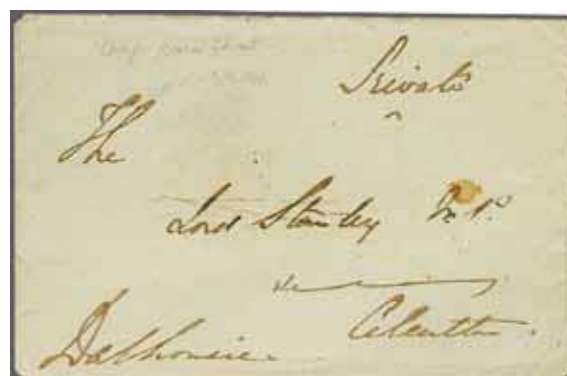 Private
The
Lord Stanley M.P.
Calcutta.
Dalhousie.